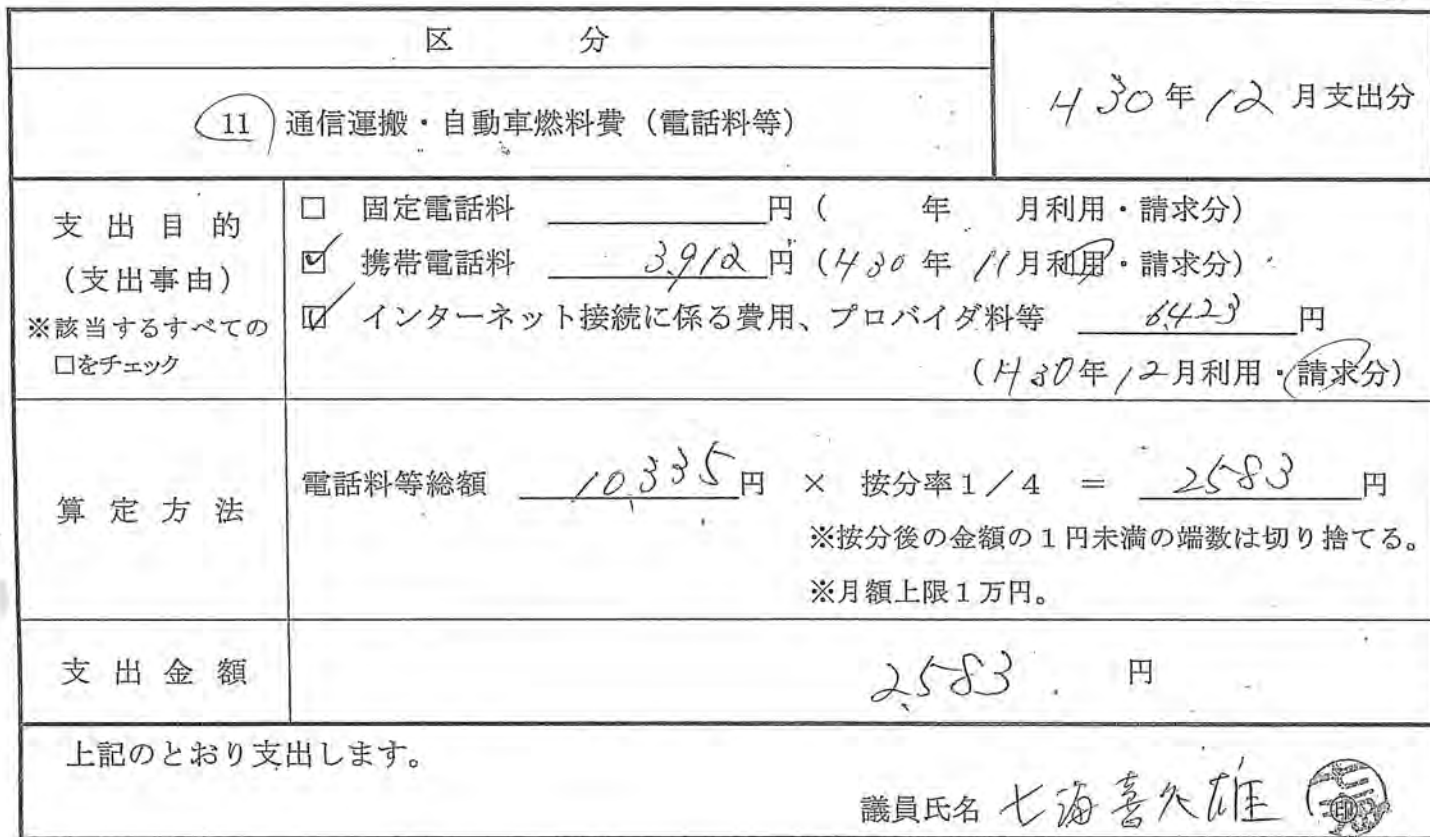 区 分
11 通信運搬・自動車燃料費（電話料等）
H30年12月支出分
支出目的
（支出事由）
※該当するすべての
□をチェック
□ 固定電話料 円（ 年 月利用・請求分）
☑ 携帯電話料 3,912円（H30年11月利用・請求分）
☑ インターネット接続に係る費用、プロバイダ料等 6,423円
（H30年12月利用・請求分）
算定方法
電話料等総額 10,335円 × 按分率1／4 ＝ 2583円
※按分後の金額の1円未満の端数は切り捨てる。
※月額上限1万円。
支出金額
2,583 円
上記のとおり支出します。
議員氏名 七海喜久雄 印